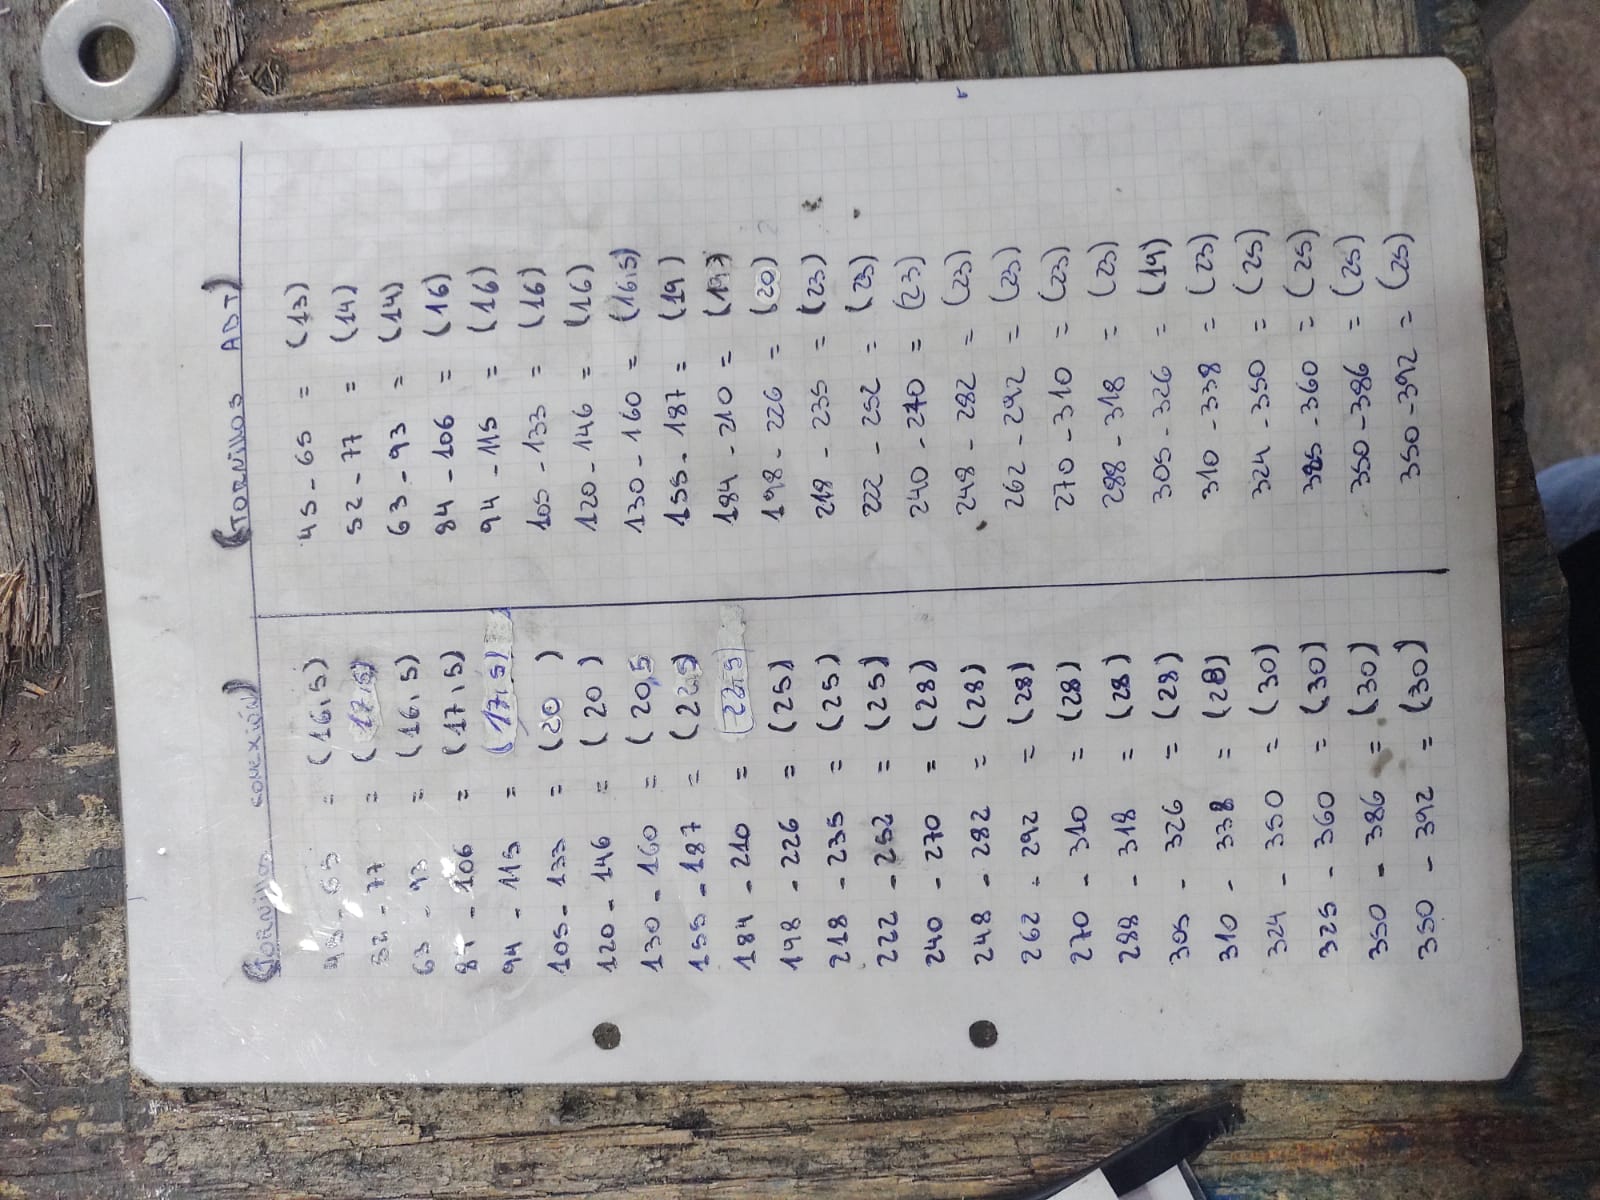 (TORNILLOS CONEXIÓN)
45 - 65 = (16,5)
52 - 77 = (17,5)
63 - 93 = (16,5)
84 - 106 = (17,5)
94 - 115 = (17,5)
105 - 133 = (20 )
120 - 146 = (20)
130 - 160 = (20,5
155 - 187 = (22,5)
184 - 210 = (22,5)
198 - 226 = (25)
218 - 235 = (25)
222 - 252 = (25)
240 - 270 = (28)
248 - 282 = (28)
262 - 292 = (28)
270 - 310 = (28)
288 - 318 = (28)
305 - 326 = (28)
310 - 338 = (28)
324 - 350 = (30)
325 - 360 = (30)
350 - 386 = (30)
350 - 392 = (30)
(TORNILLOS ABT)
45 - 65 = (13)
52 - 77 = (14)
63 - 93 = (14)
84 - 106 = (16)
94 - 115 = (16)
105 - 133 = (16)
120 - 146 = (16)
130 - 160 = (16,5)
155 - 187 = (19)
184 - 210 = (19)
198 - 226 = (20)
218 - 235 = (23)
222 - 252 = (23)
240 - 270 = (23)
248 - 282 = (23)
262 - 292 = (23)
270 - 310 = (23)
288 - 318 = (23)
305 - 326 = (19)
310 - 338 = (23)
324 - 350 = (25)
325 - 360 = (25)
350 - 386 = (25)
350 - 392 = (25)